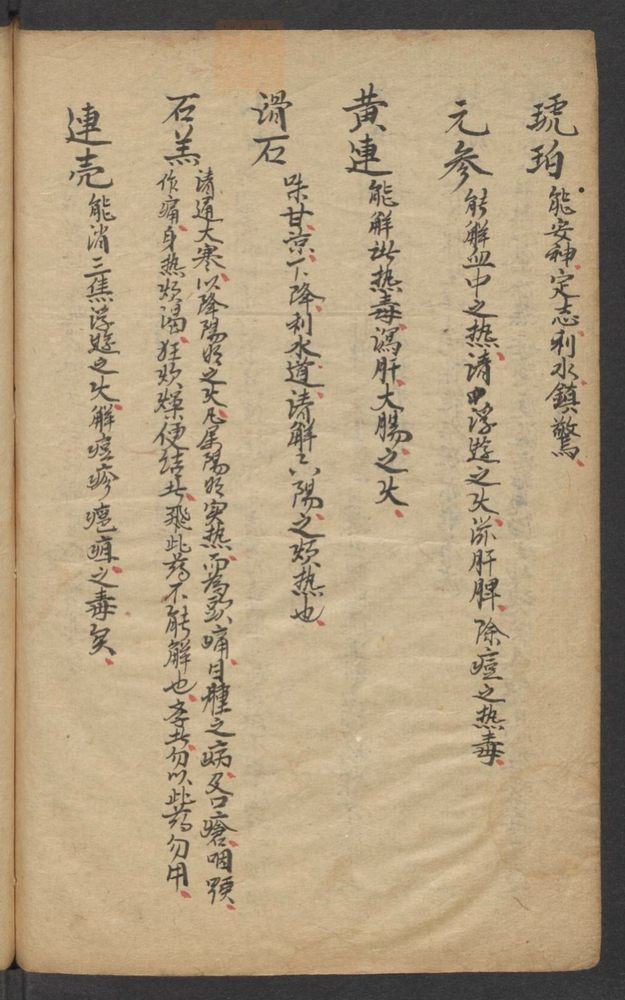 琥珀 能安神、定志、利水、鎮驚、
元参 能解血中之热、清中浮遊之火、涼肝脾、除痘之热毒、
黄連 能解諸热毒、瀉肝、大腸之火、
滑石 味甘、凉、下降、利水道、清解六陽之烦热也、
石羔 清通大寒、以降陽明之火、凡属陽明实热、而为頭痛、目腫之病、及口瘡、咽頸
作痛、身热烦渴、狂烦燥、便结者、飛此药不能解也、孝者勿以此药勿用、
連壳 能消三焦浮遊之火、解痘疹瘡疽之毒矣、